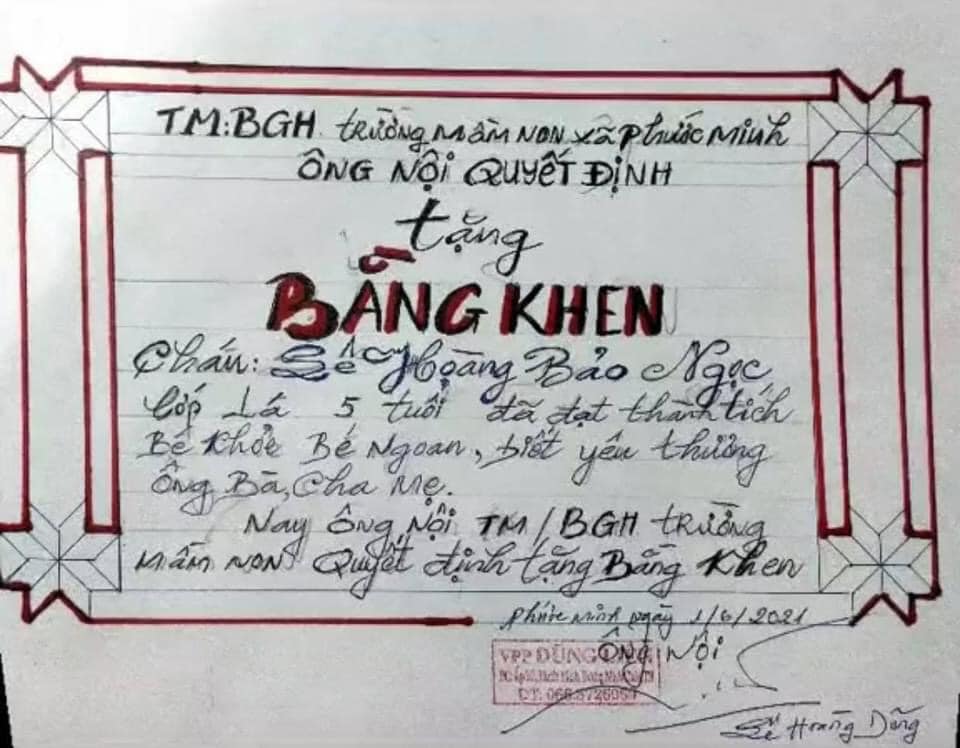 TM:BGH trường mầm non xã Phước Minh
ÔNG NỘI QUYẾT ĐỊNH
tặng
BẰNG KHEN
Cháu: Lê Hoàng Bảo Ngọc
Lớp Lá 5 tuổi đã đạt thành tích
Bé Khỏe Bé Ngoan, biết yêu thương
Ông Bà, Cha Mẹ.
Nay Ông Nội TM/BGH trường
mầm non Quyết định tặng Bằng Khen
Phước Minh ngày 1/6/2021
Ông Nội
VPP DŨNG
ĐT: 066.
Lê Hoàng Dũng